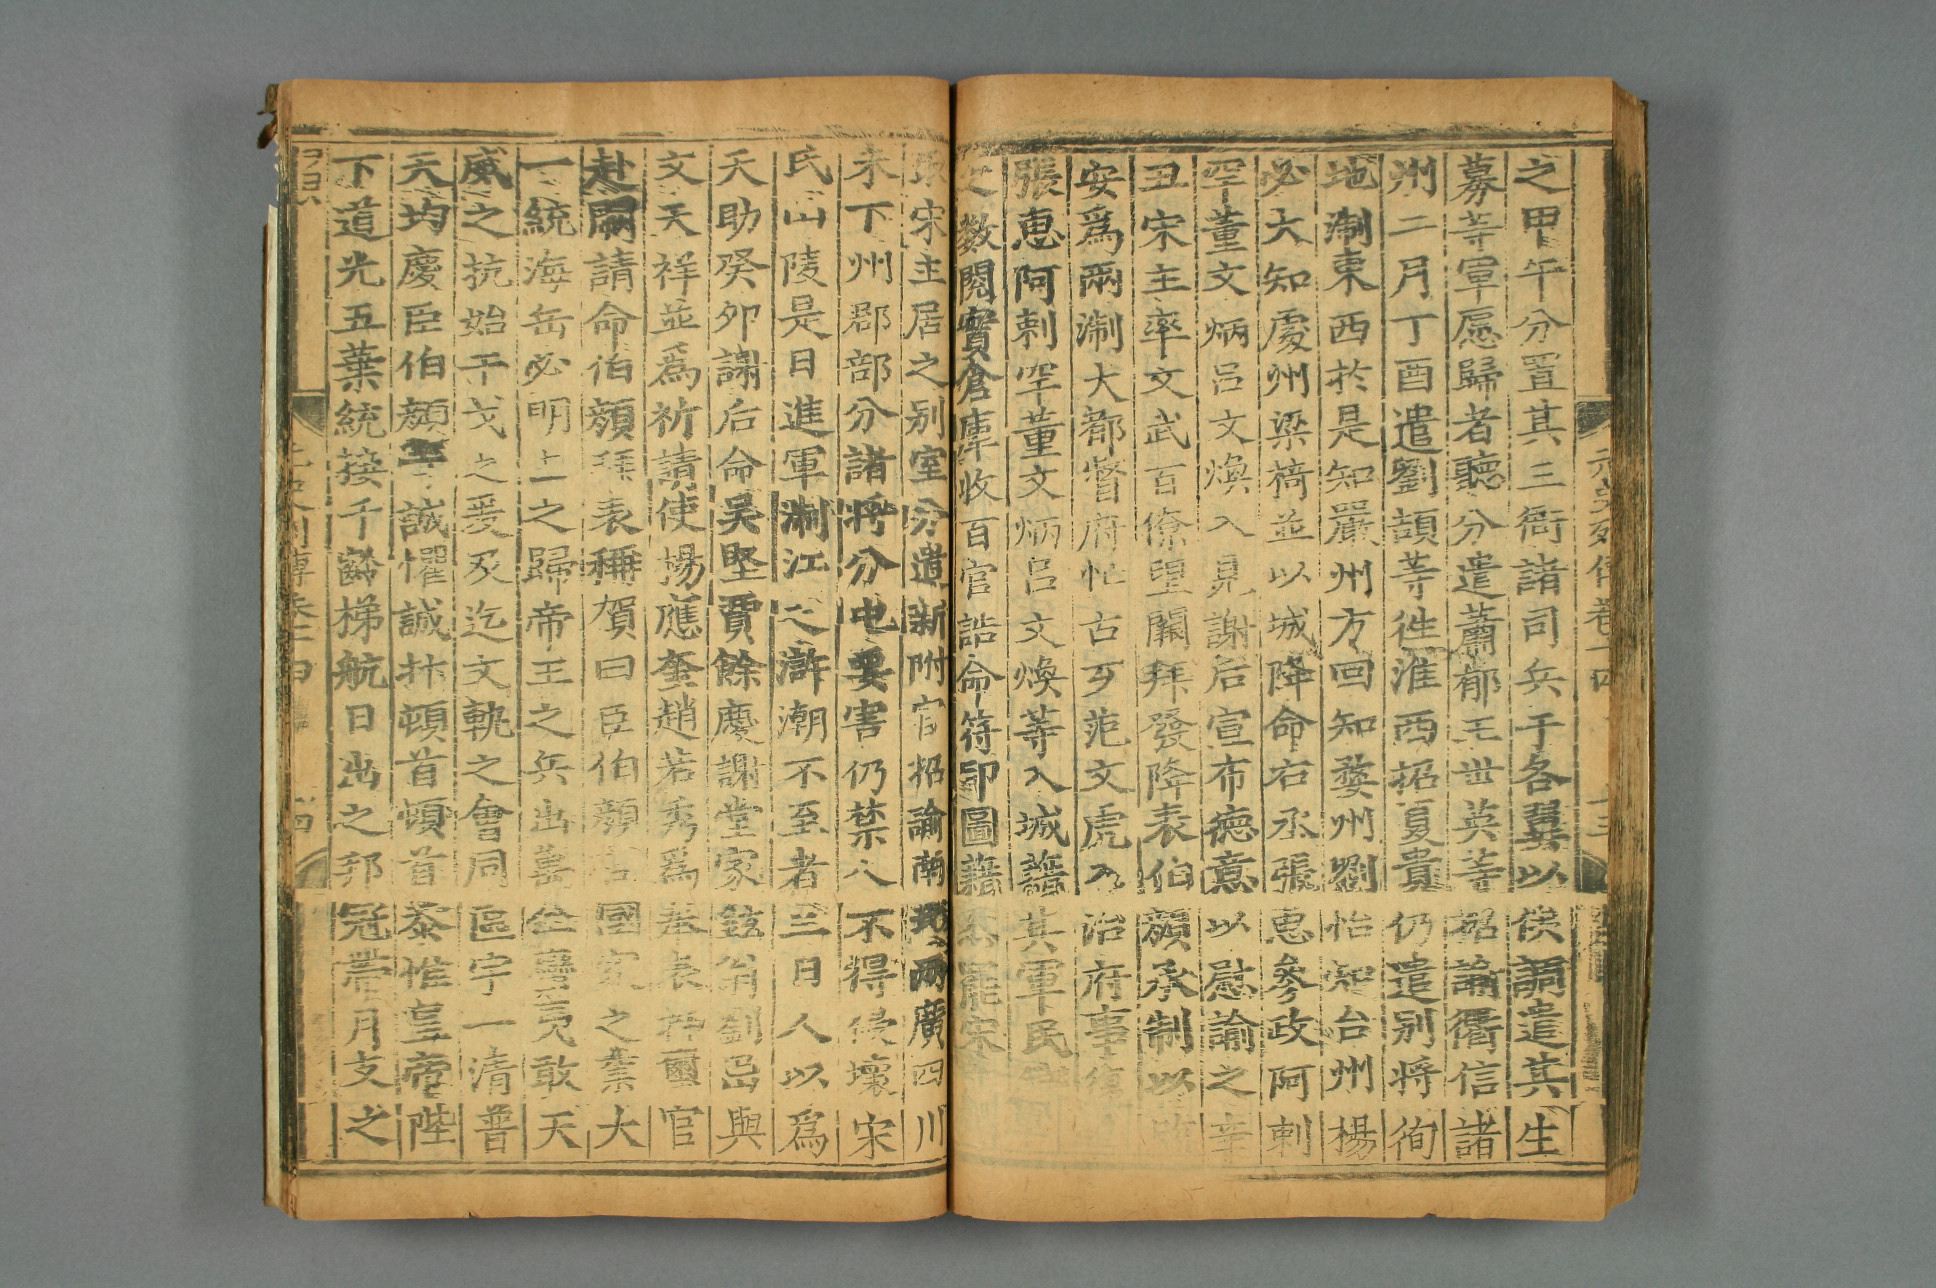 之甲午分置其三衙諸司兵于各翼以俟調遣其生
募等軍愿歸者聽分遣蕭郁王世英等招諭衢信諸
州二月丁酉遣劉頡等徃淮西招夏貴仍遣别將徇
地淛東西於是知嚴州方回知婺州劉怡知台州楊
必大知處州梁椅並以城降命右丞張惠參政阿剌
罕董文炳呂文煥入見謝后宣布德意以慰諭之辛
丑宋主率文武百僚望闕拜發降表伯顏承制以臨
安爲兩淛大都督府忙古歹范文虎入治府事復
張惠阿剌罕董文炳呂文煥等入城籍其軍民
之數閱實倉庫收百官誥命符印圖籍悉罷宋
取宋主居之别室分遣新附官招諭南兩廣四川
未下州郡部分諸將分屯要害仍禁人不得侵壞宋
氏山陵是日進軍淛江之滸潮不至者三日人以爲
天助癸卯謝后命吳堅賈餘慶謝堂家鉉翁劉岊與
文天祥並爲祈請使揚應奎趙若秀爲奉表押璽官
赴闕請命伯顏拜表稱賀曰臣伯顏言國家之業大
一統海岳必明主之歸帝王之兵出萬全蠻夷敢天
威之抗始干戈之爰及迄文軌之會同區宇一清普
天均慶臣伯顏等誠懽誠抃頓首頓首恭惟皇帝陛
下道光五葉統接千齡梯航日出之邦冠帶月支之
元史列傳卷十四
十三